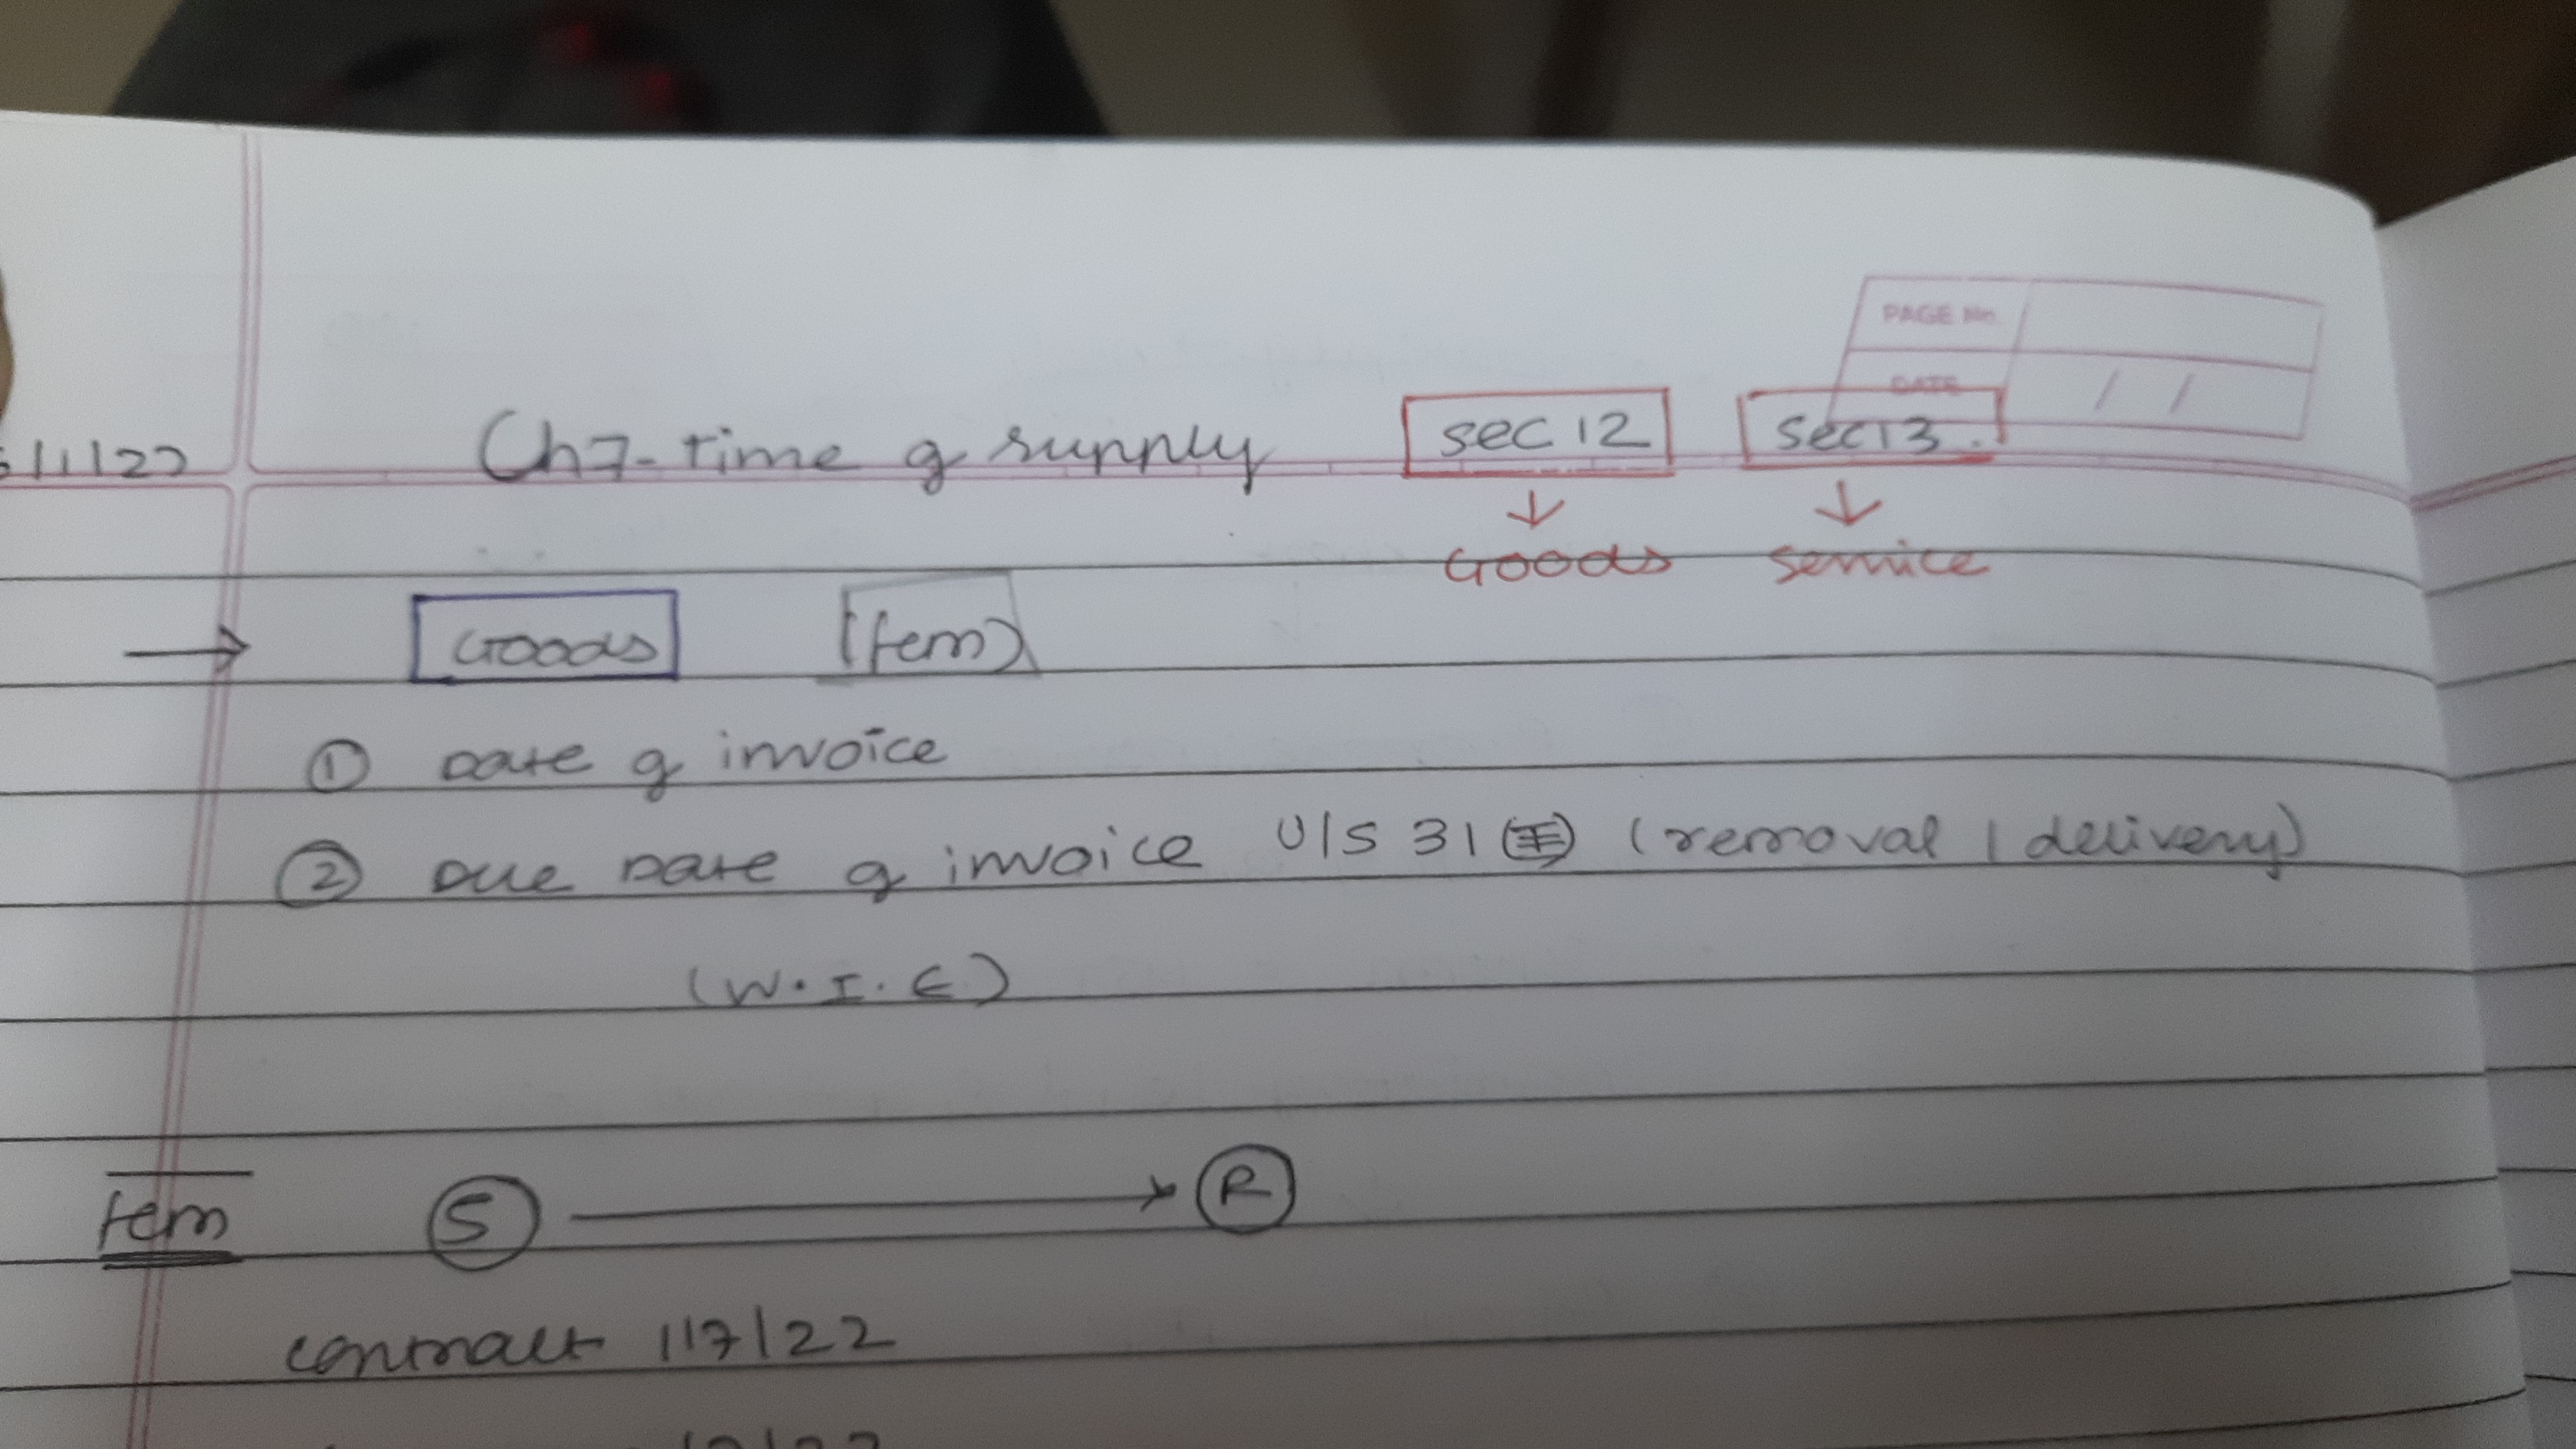 PAGE No.
DATE / /
/11/22 Ch7- time of supply sec 12 sec 13.
↓ ↓
Goods service
→ Goods (fcm)
① Date of invoice
② Due Date of invoice U/S 31 (removal / delivery)
(W.I.E)
fcm S → R
contract 1/7/22